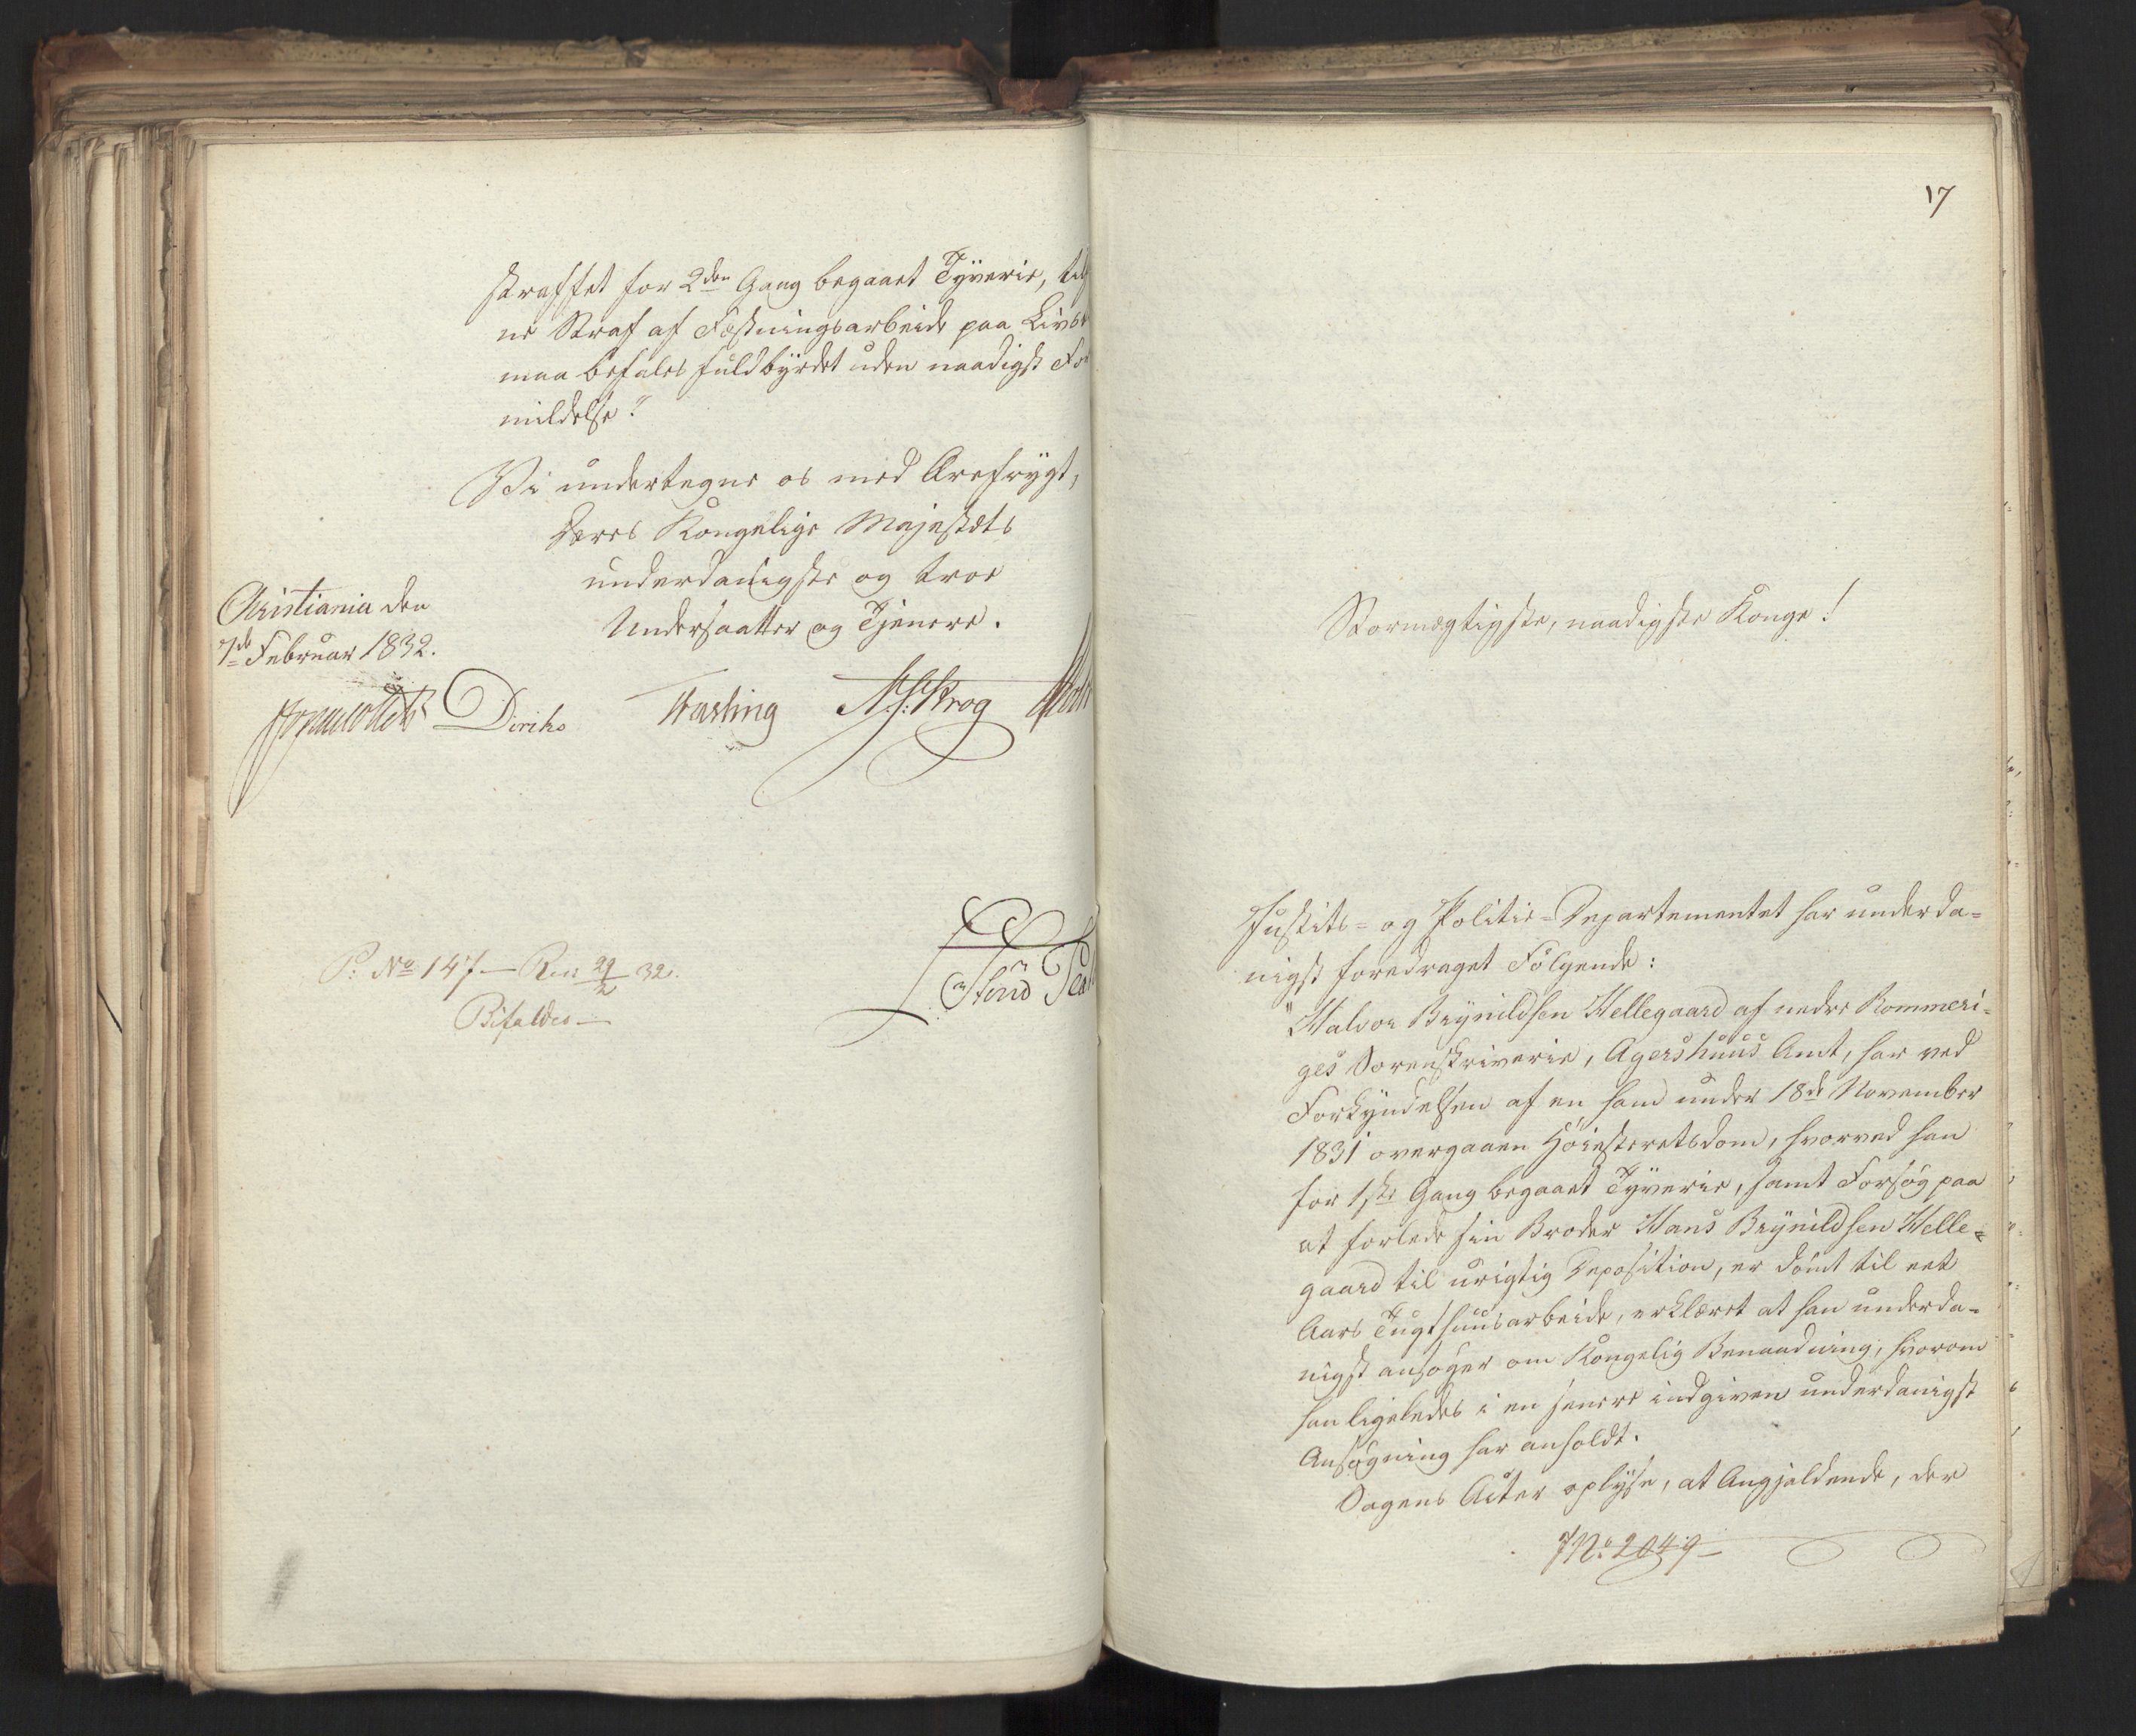 straffet for 2den Gang begaaet Tyverie,
ne Straf af Fæstningsarbeide paa Livs
maa befales fuldbyrdet uden naadigst For
mildelse."
Vi undertegne os med Ærefrygt,
Deres Kongelige Majestæts
underdanigste og troe
Undersaatter og Tjenere.
Christiania den
7de Februar 1832.
Jonas Collett Diriks Fasting N. J. Krog
P: No 147 – Res 29/2 32.
Bifaldes –
17
Stormægtigste, naadigste Konge!
Justits- og Politie-Departementet har underda-
nigst foredraget Følgende:
"Halvor Brynildsen Hellegaard af nedre Rommeri-
ges Sorenskriverie, Agershuus Amt, har ved
Forkyndelsen af en ham under 18de November
1831 overgaaen Høiesteretsdom, hvorved han
for 1ste Gang begaaet Tyverie, samt Forsøg paa
at forlede sin Broder Hans Brynildsen Helle-
gaard til urigtig Deposition, er dømt til eet
Aars Tugthuusarbeide, erklæret at han underda-
nigst ansøger om Kongelig Benaadning, hvorom
han ligeledes i en senere indgiven underdanigst
Ansøgning har anholdt.
Sagens Acter oplyse, at Angjældende, der
J No. 2049 –